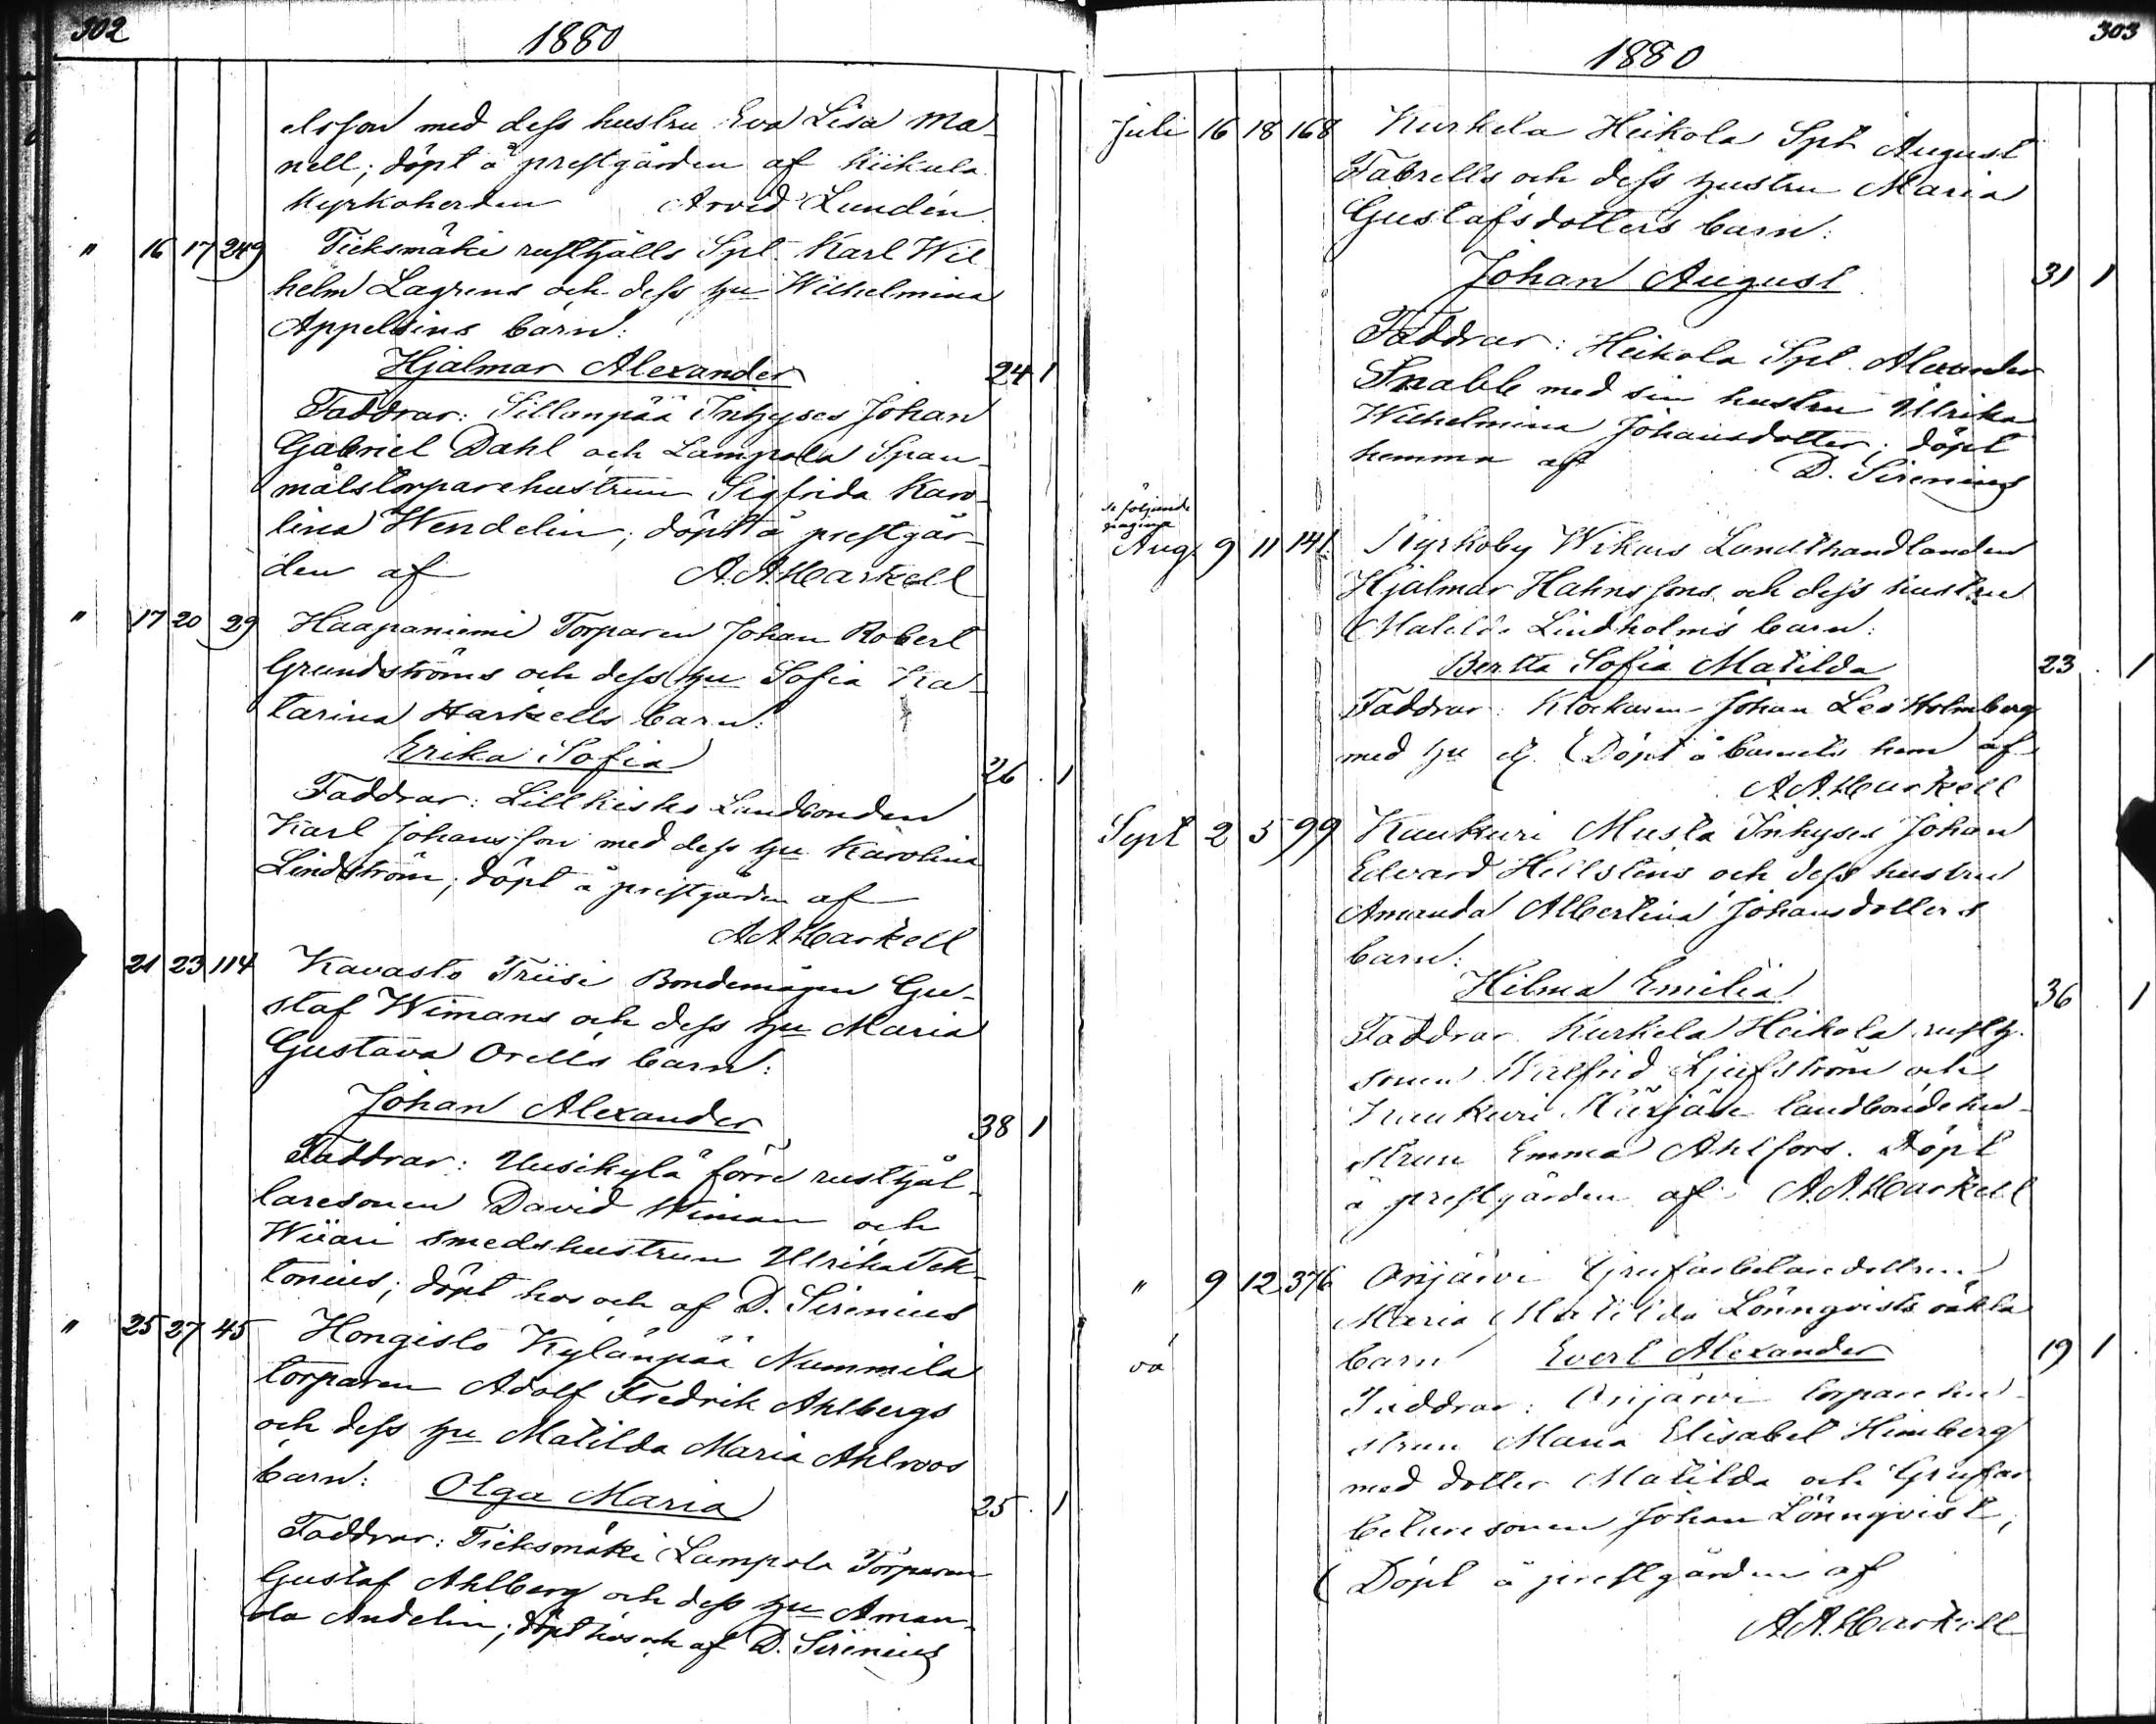 302
1880
elsson med dess hustru Eva Lisa Ma-
nell; döpt å prestgården af Kiikala
Kyrkoherden Arvid Lundén
" 16 17 249 Tieksmäki rusthålls Spl. Karl Wil
helm Lagrens och dess hu Wilhelmina
Appelsins barn:
Hjalmar Alexander 24 1
Faddrar: Sillanpää Inhyses Johan
Gabriel Dahl och Lampola Span-
målstorparehustrun Sigfrida Karo-
lina Wendelin; döpt å prestgår-
den af A. A. Harkell
" 17 20 29 Haapaniemi Torparen Johan Robert
Grundströms och dess hu Sofia Ka-
tarina Harkells barn:
Erika Sofia 26 . 1
Faddrar: Lillkisko Landbonden
Karl Johansson med dess hu Karolina
Lindström; döpt å prestgården af
A A Harkell
21 23 114 Kavasto Triisi Bondemågen Gu-
staf Wimans och dess hu Maria
Gustava Orells barn:
Johan Alexander 38 1
Faddrar: Uusikylä förre rusthål-
laresonen David Wiman och
Wiiari smedshustrun Ulrika Tek-
tonius; döpt hos och af D. Sirenius
" 25 27 45 Hongisto Kylänpää Nummila
torparen Adolf Fredrik Ahlbergs
och dess hu Matilda Maria Ahlroos
barn: Olga Maria 25 . 1
Faddrar: Tieksmäki Lampola Torparen
Gustaf Ahlberg och dess hu Aman-
da Andelin; döpt hos och af D. Sirenius
303
1880
Juli 16 18 168 Kurkela Heikola Spl August
Fabrells och dess hustru Maria
Gustafsdotters barn:
Johan August 31 1
Faddrar: Heikola Spl. Alexander
Snabb med sin hustru Ulrika
Wilhelmina Johansdotter; döpt
hemma af D. Sirenius
se följande
pagina
Aug. 9 11 141. Kyrkoby Wikars Landthandlanden
Hjalmar Hahnssons och dess hustru
Matilda Lindholms barn:
Bertta Sofia Matilda 23 . 1
Faddrar: Klockaren Johan Leo Holmberg
med hu Döpt å barnets hem af
A A Harkell
Sept 2 5 99 Kaukuri Musta Inhyses Johan
Edvard Hellstens och dess hustru
Amanda Albertina Johansdotters
barn:
Hilma Emilia 36 1
Faddrar Kurkela Heikola rusth.
sonen Walfrid Ljufström och
Kaukuri landbondehu-
strun Emma Ahlfors. Döpt
å prestgården af A. A. Harkell
" 9 12 376 Orijärvi Grufarbetaredottren
Maria Matilda Lönnqvists oäkta
oä barn Evert Alexander 19 1
Faddrar: Orijärvi torparehu-
strun Maria Elisabet Himberg
med dotter Matilda och Grufar
betaresonen Johan Lönnqvist;
Döpt å prestgården af
A A. Harkell